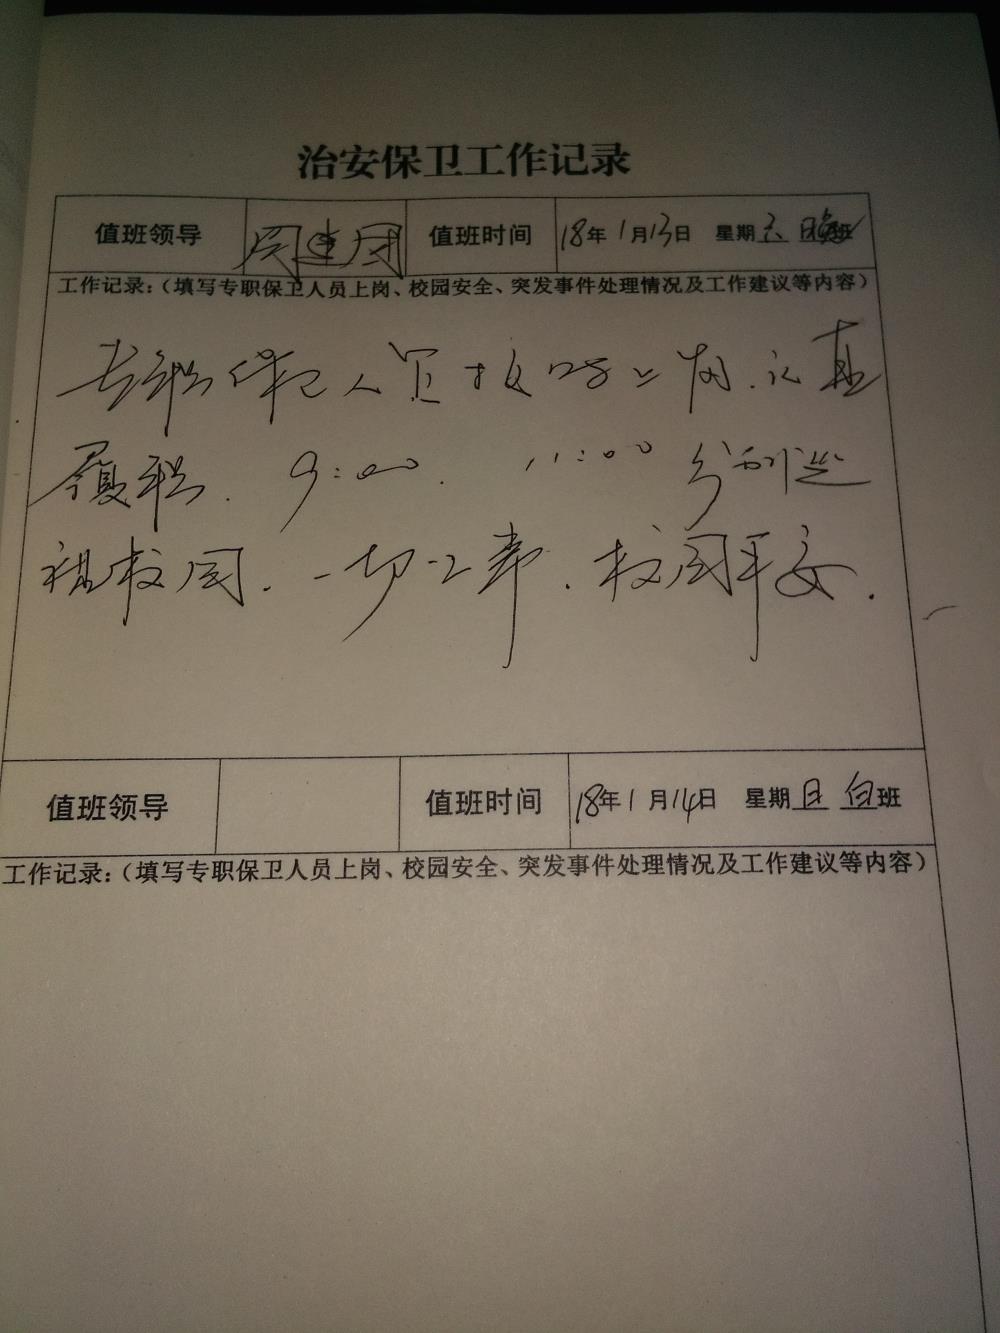 治安保卫工作记录
值班领导 周建团 值班时间 18年1月13日 星期六 晚班
工作记录：（填写专职保卫人员上岗、校园安全、突发事件处理情况及工作建议等内容）
专职保卫人员按时上岗.认真
履职. 9:00. 11:00 分别巡
视校园.一切正常.校园平安.
值班领导 值班时间 18年1月14日 星期日 白班
工作记录：（填写专职保卫人员上岗、校园安全、突发事件处理情况及工作建议等内容）